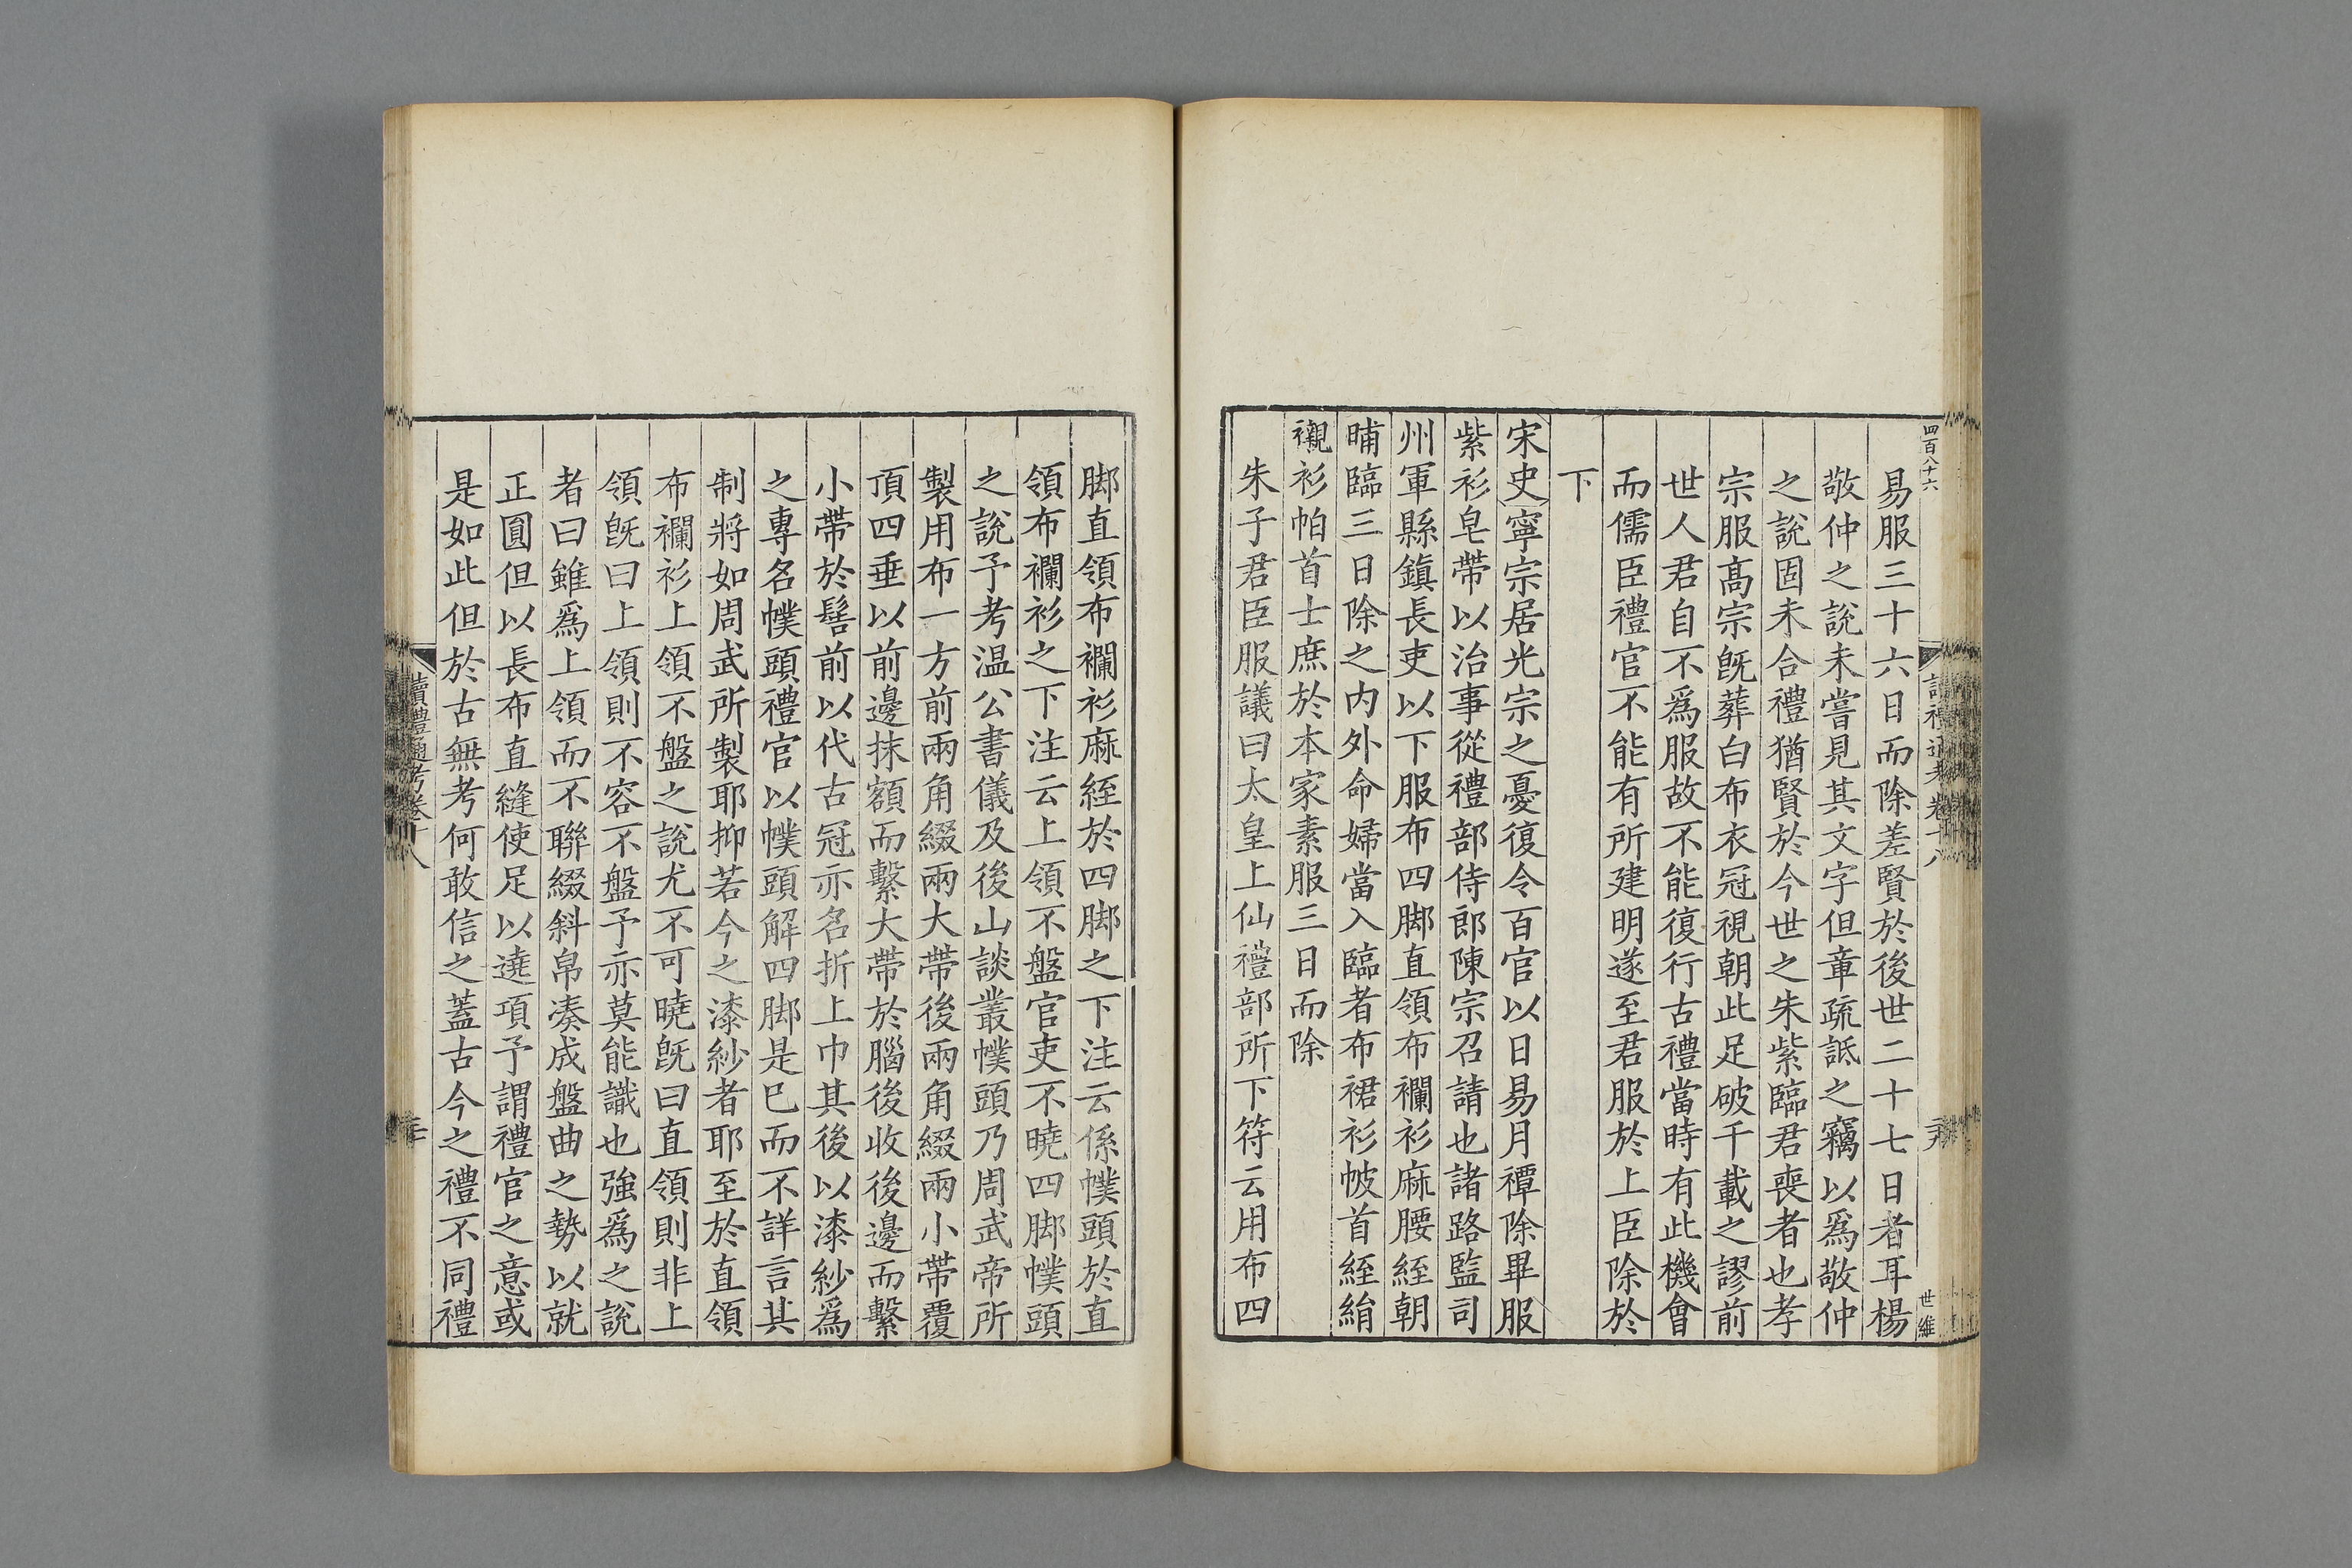 四百八十六
讀禮通考卷十八
世維
易服三十六日而除差賢於後世二十七日者耳楊
敬仲之說未嘗見其文字但章疏詆之竊以爲敬仲
之說固未合禮猶賢於今世之朱紫臨君喪者也孝
宗服髙宗旣葬白布衣冠視朝此足破千載之謬前
世人君自不爲服故不能復行古禮當時有此機會
而儒臣禮官不能有所建明遂至君服於上臣除於
下
宋史寧宗居光宗之憂復令百官以日易月禫除畢服
紫衫皂帶以治事從禮部侍郎陳宗召請也諸路監司
州軍縣鎮長吏以下服布四脚直領布襴衫麻腰絰朝
晡臨三日除之内外命婦當入臨者布裙衫帔首絰絹
襯衫帕首士庶於本家素服三日而除
朱子君臣服議曰太皇上仙禮部所下符云用布四
脚直領布襴衫麻絰於四脚之下注云係幞頭於直
領布襴衫之下注云上領不盤官吏不曉四脚幞頭
之說予考温公書儀及後山談叢幞頭乃周武帝所
製用布一方前兩角綴兩大帶後兩角綴兩小帶覆
頂四垂以前邊抹額而繫大帶於腦後收後邊而繫
小帶於髻前以代古冠亦名折上巾其後以漆紗爲
之專名幞頭禮官以幞頭解四脚是已而不詳言其
制將如周武所製耶抑若今之漆紗者耶至於直領
布襴衫上領不盤之說尤不可曉旣曰直領則非上
領旣曰上領則不容不盤予亦莫能識也強爲之說
者曰雖爲上領而不聯綴斜帛凑成盤曲之勢以就
正圓但以長布直縫使足以遶項予謂禮官之意或
是如此但於古無考何敢信之蓋古今之禮不同禮
讀禮通考卷十八